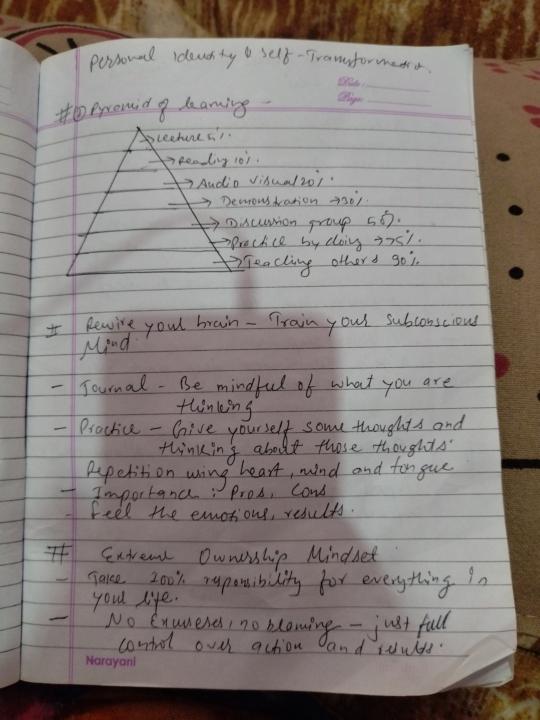 Personal Identity & Self-Transformation.
Date:
Page:
# Pyramid of learning -
→ Lecture 5%.
→ Reading 10%.
→ Audio visual 20%.
→ Demonstration → 30%.
→ Discussion group 50%.
→ Practice by doing → 75%.
→ Teaching others 90%.
# Rewire your brain - Train your Subconscious
Mind.
- Journal - Be mindful of what you are
thinking
- Practice - Give yourself some thoughts and
thinking about those thoughts.
Repetition using heart, mind and tongue
- Importance : Pros, Cons
- Feel the emotions, results.
# Extreme Ownership Mindset
- Take 200% responsibility for everything in
your life.
- No Excuses, no blaming - just full
control over action and results.
Narayani